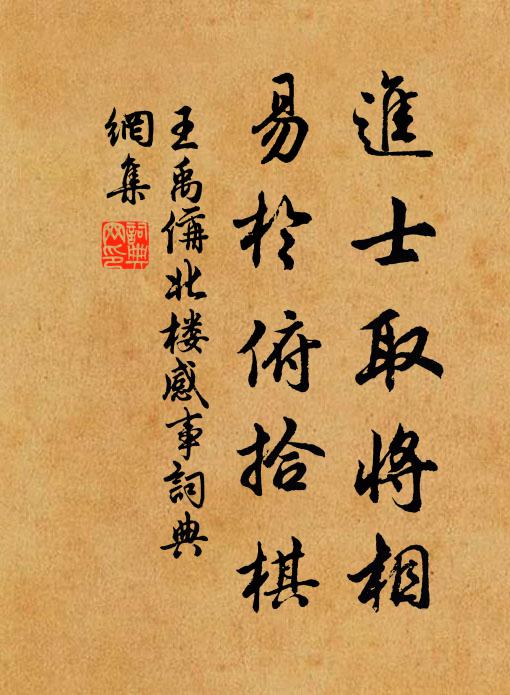 進士取將相
易於俯拾棋
王禹偁北楼感事詞典
網集
詞典
网印